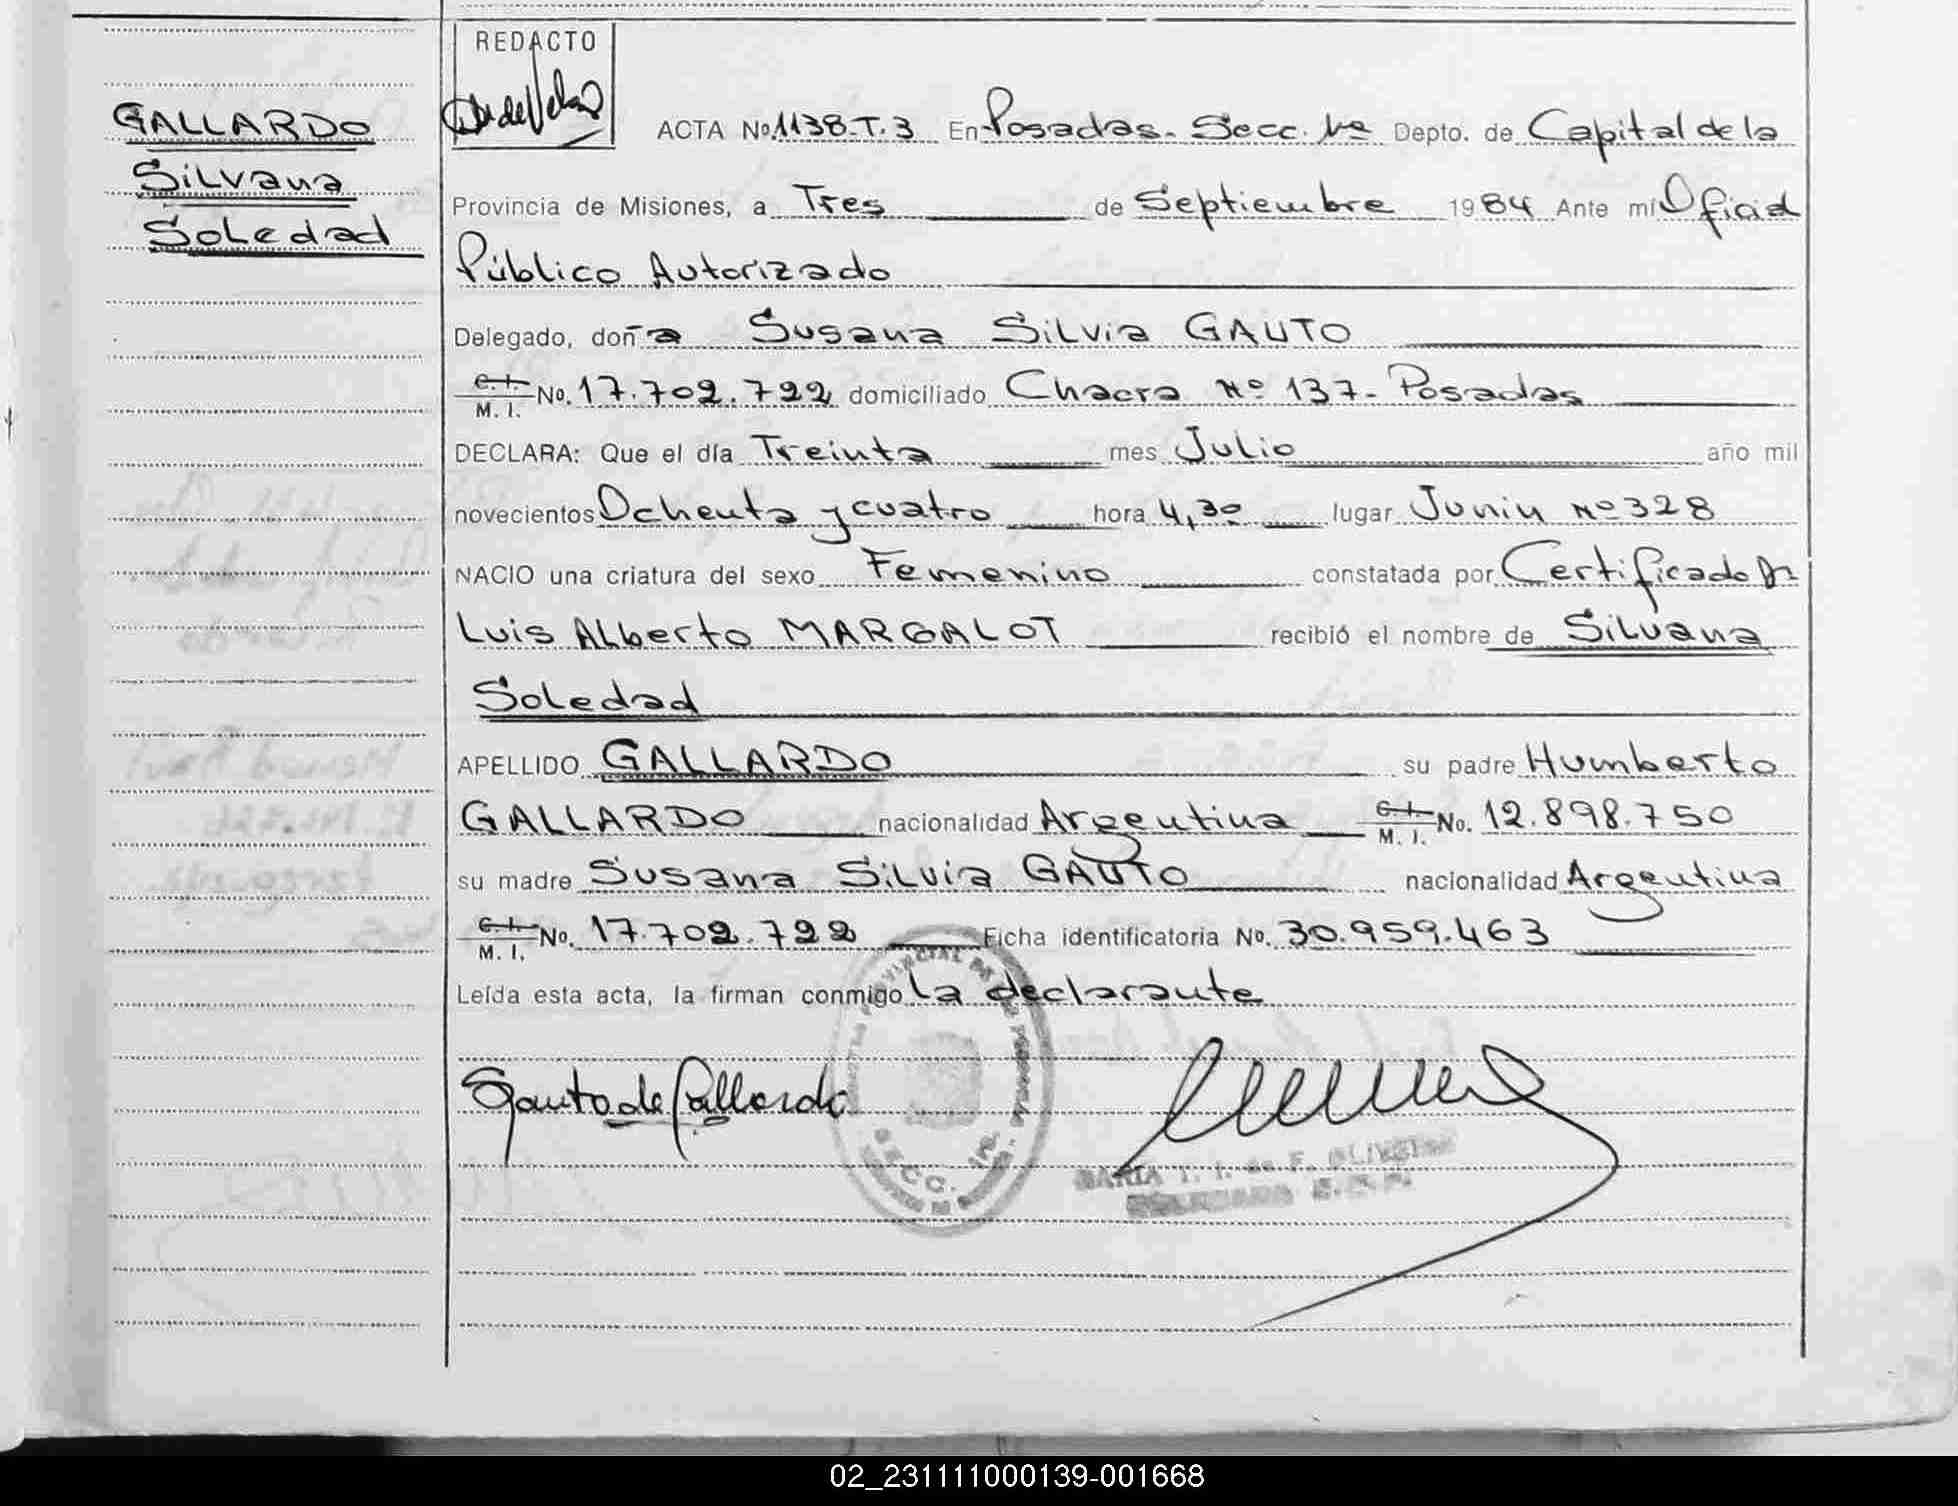 REDACTO
GALLARDO
Silvana
Soledad
ACTA No. 1138-T.3 En Posadas- Secc. 1ª Depto. de Capital de la
Provincia de Misiones, a Tres de Septiembre 1984 Ante mí Oficial
Público Autorizado
Delegado, doña Susana Silvia GAUTO
C.I. M. I. No. 17.702.722 domiciliado Chacra Nº 137- Posadas
DECLARA: Que el día Treinta mes Julio año mil
novecientos Ochenta y cuatro hora 4,30 lugar Junin Nº 328
NACIO una criatura del sexo Femenino constatada por Certificado Dr
Luis Alberto MARGALOT recibió el nombre de Silvana
Soledad
APELLIDO GALLARDO su padre Humberto
GALLARDO nacionalidad Argentina C.I. M. I. No. 12.898.750
su madre Susana Silvia GAUTO nacionalidad Argentina
C.I. M. I. No. 17.702.722 Ficha identificatoria No. 30.959.463
Leída esta acta, la firman conmigo la declarante
SGauto de Gallardo
SECC. 1ra.
MARIA T. I. de F. OLIVEIRA
02_231111000139-001668